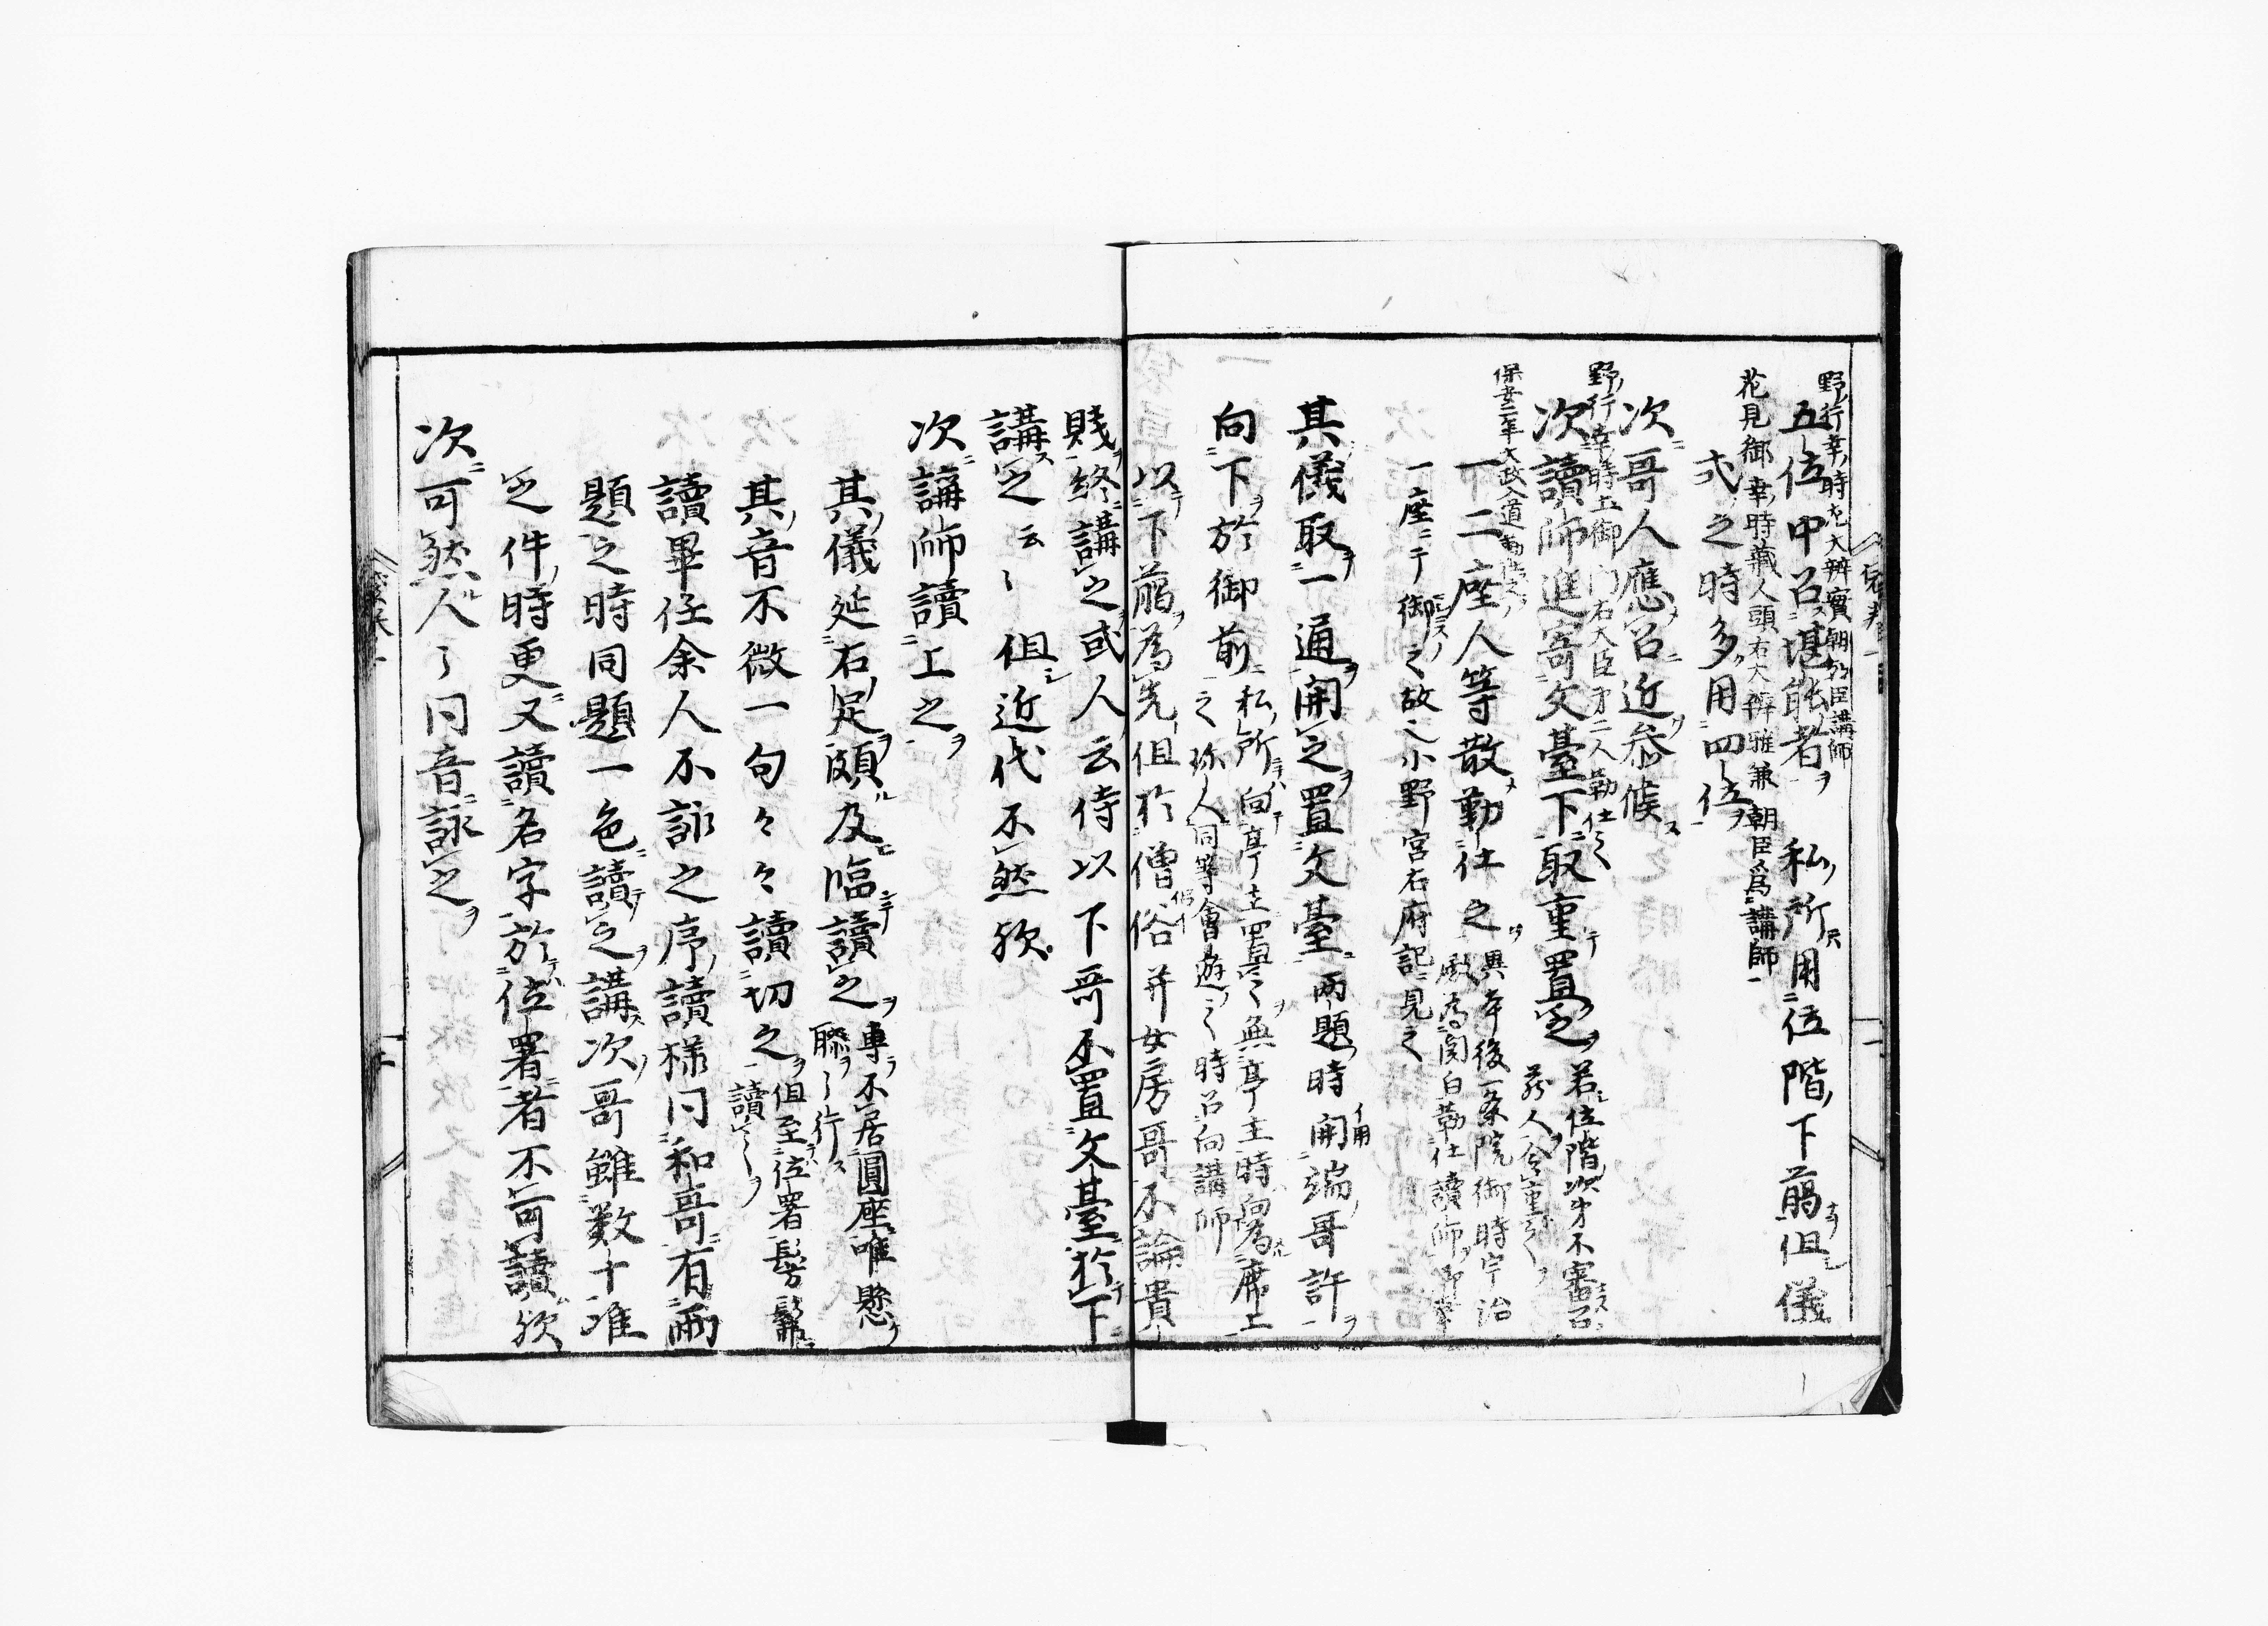 野行幸時左大辨實朝臣講師
五位中召堪能者 私所用位階下﨟但儀
花見御幸時藏人頭右大辨雅兼朝臣為講師
式之時多用四位
次哥人應召近参候
野行幸時土御門右大臣第二人勤仕之
次讀師進寄文臺下取重置之 若位階次第不審召
茲人令重之
保安二年大政入道
一二座人等散勤仕之 異本後一条院御時宇治
殿為関白勤仕讀師御幸
一座ニテ御之故也小野宮右府記見之
其儀取一通開之置文臺 兩題時開端哥許
向下於御前 私所向亭主置之無亭主時向為席上
之弥人同等會遊之時召向講師
以下﨟為先但於僧俗并女房哥不論貴
賤終講之或人云侍以下哥不置文臺於下
講之云々 但近代不然歟
次講師讀上之
其儀延右足頗及臨讀之 車不居圓座唯懸
膝々行
其音不微一句々々讀切之 但至位署髣髴
讀之
讀畢任余人不詠之序讀様同和哥有兩
題之時同題一色讀之講次哥雖数十准
之件時更又讀名字於位署者不可讀歟
次可然人々同音詠之